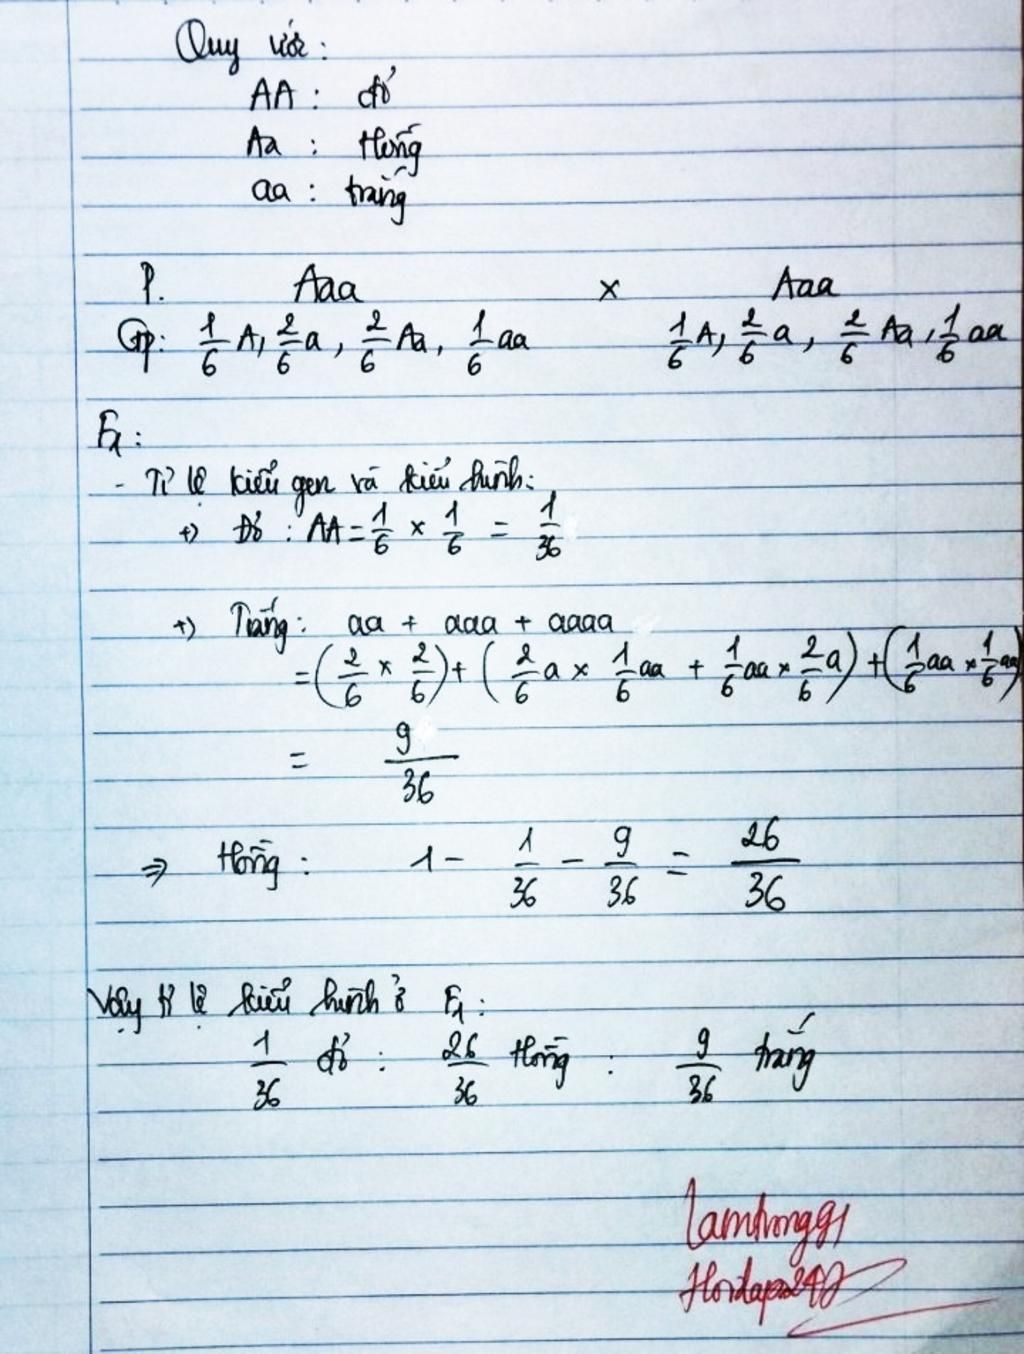 Quy ước:
AA : đỏ
Aa : Hồng
aa : trắng
P. Aaa × Aaa
Gp: 1/6 A, 2/6 a, 2/6 Aa, 1/6 aa 1/6 A, 2/6 a, 2/6 Aa, 1/6 aa
F1:
- Tỉ lệ kiểu gen và kiểu hình:
+) Đỏ : AA = 1/6 × 1/6 = 1/36
+) Trắng: aa + aaa + aaaa
= (2/6 × 2/6) + (2/6 a × 1/6 aa + 1/6 aa × 2/6 a) + (1/6 aa × 1/6 aa)
= 9/36
=> Hồng : 1 - 1/36 - 9/36 = 26/36
Vậy tỉ lệ kiểu hình ở F1:
1/36 đỏ : 26/36 Hồng : 9/36 trắng
lamtrong91
Hoidap247